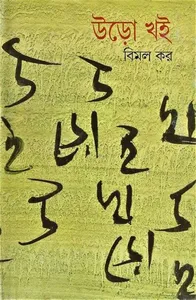 উড়ো খই
বিমল কর
উ উ
ই ড়ো ই খ
উ খ উ
ই ড়ো